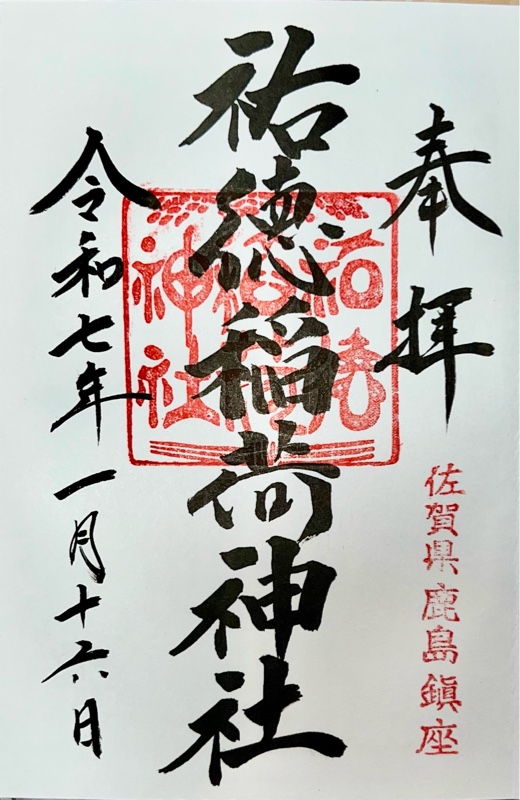 奉拝
佐賀県鹿島鎮座
祐徳稲荷神社
祐徳稲荷神社
令和七年一月十六日